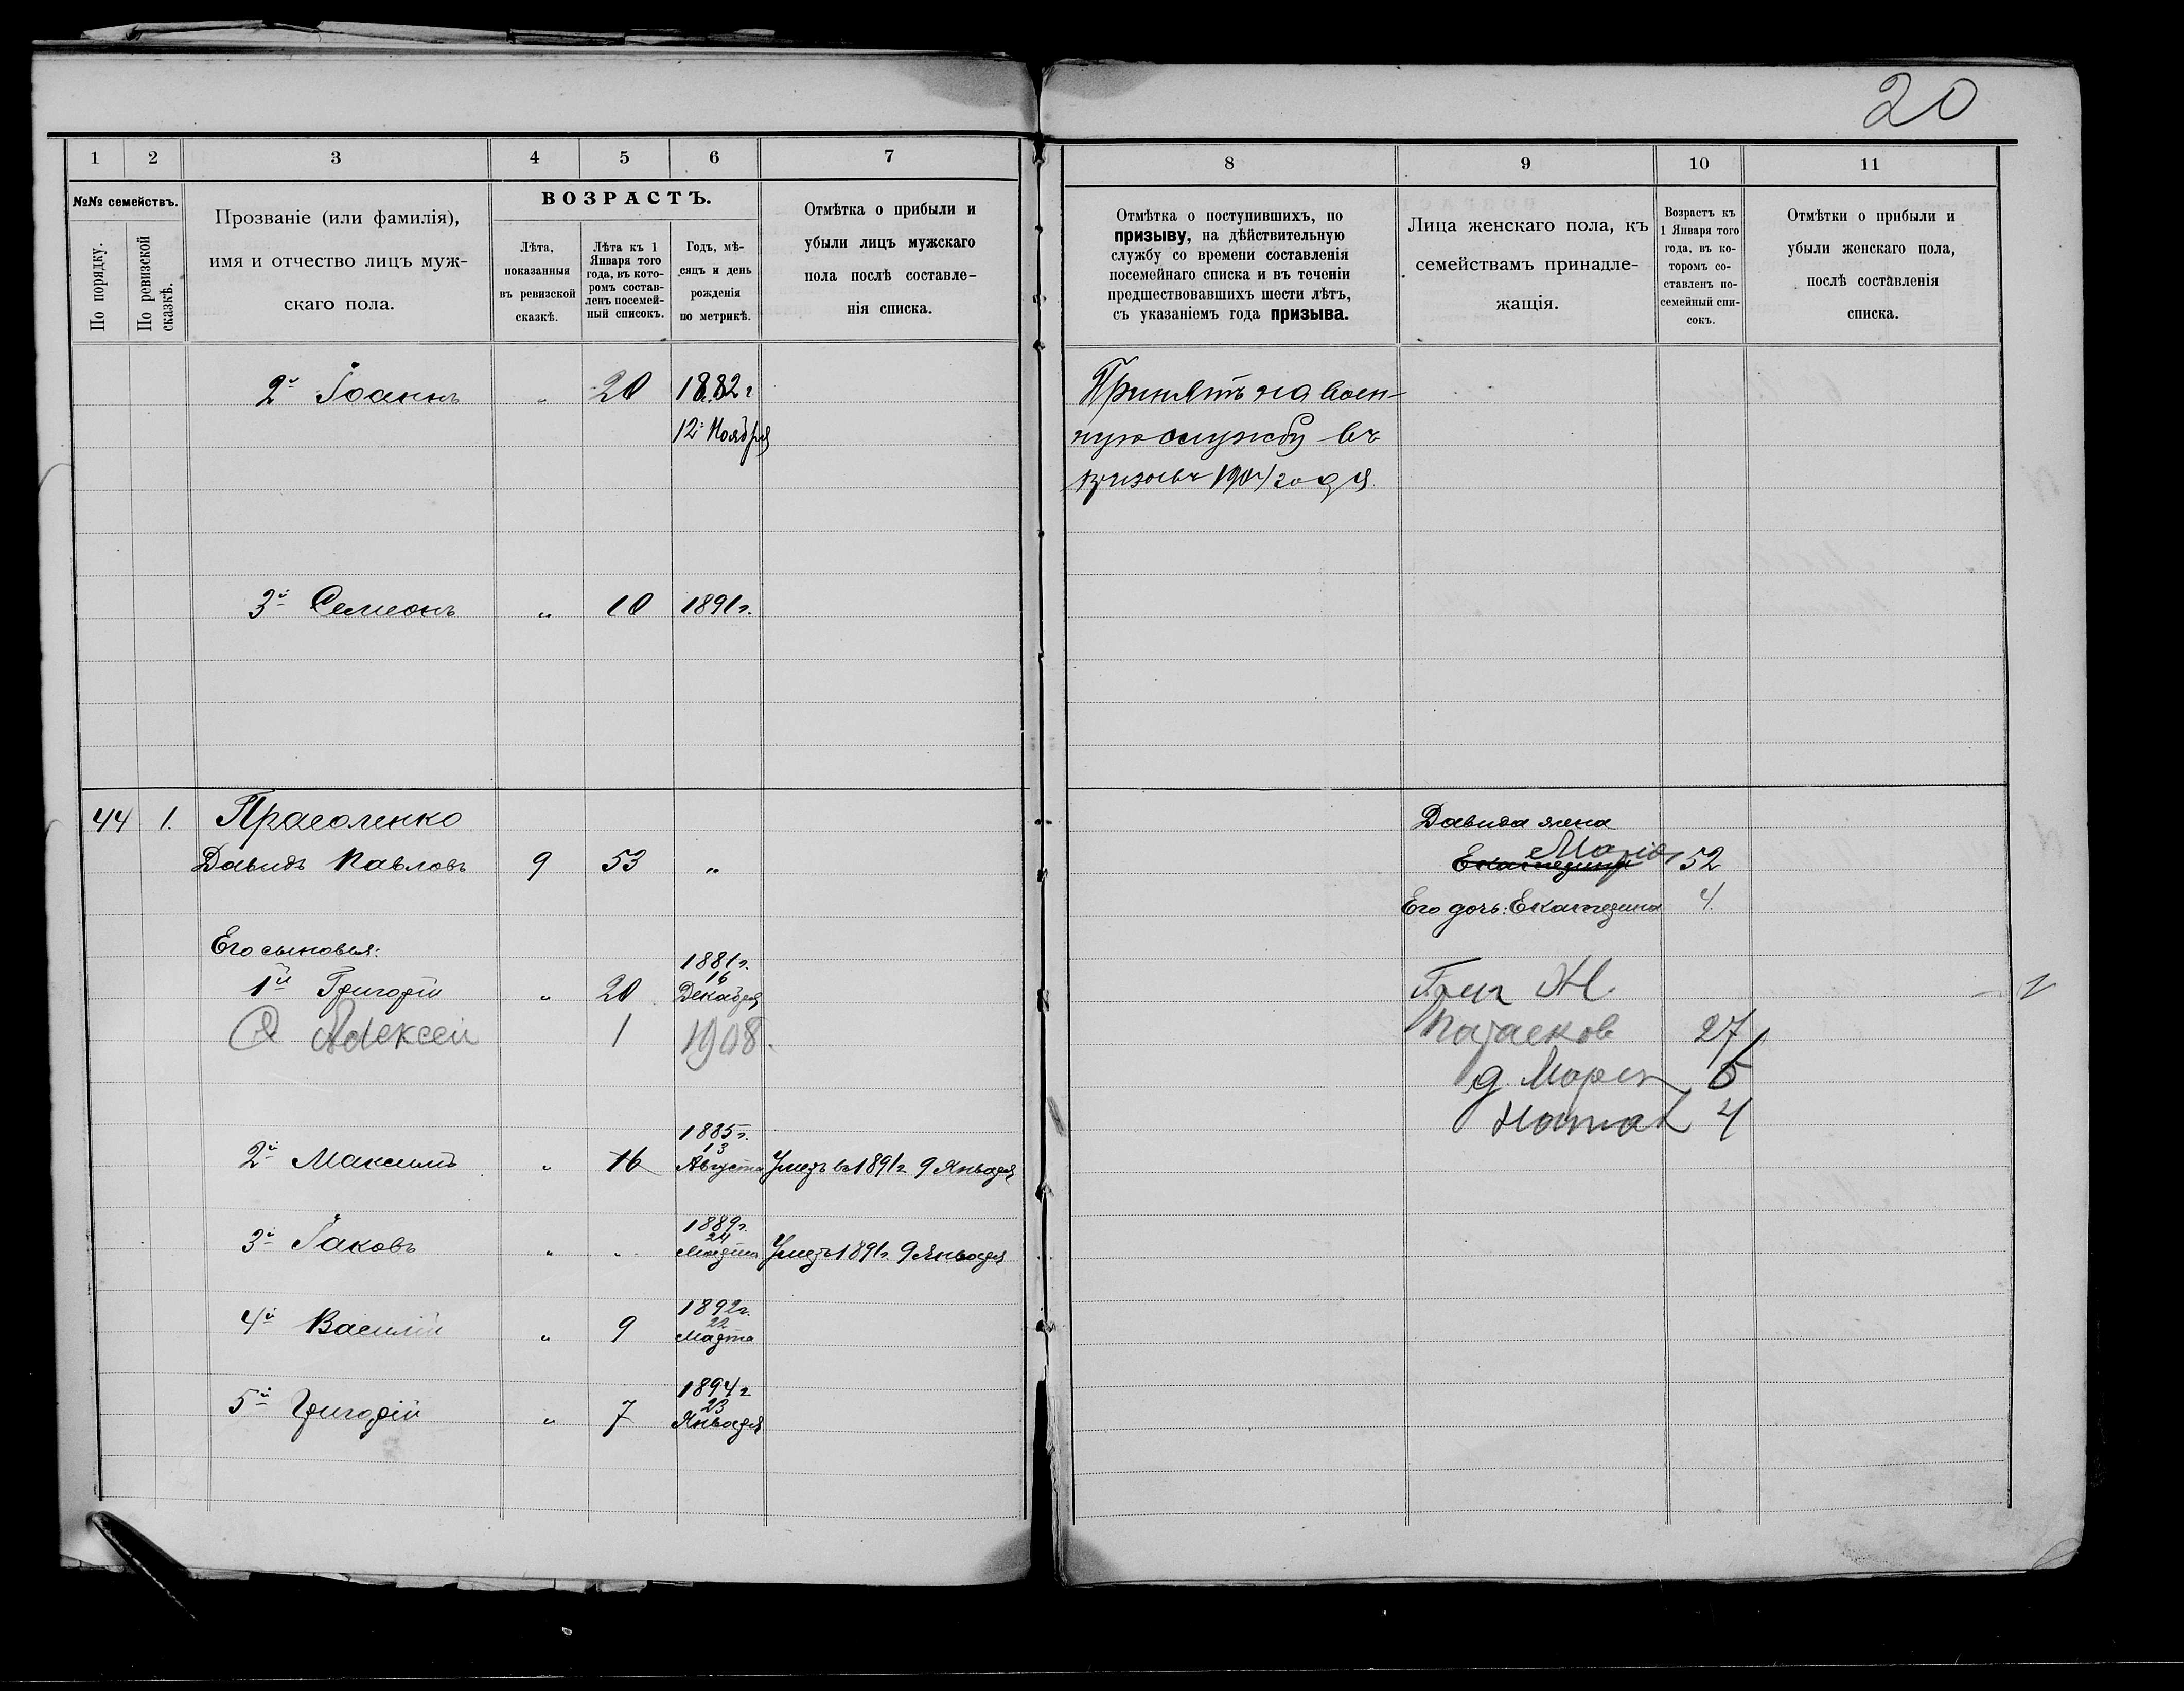 20
1 2 3 4 5 6 7
№№ семействъ.
По порядку.
По ревизской сказкѣ.
Прозваніе (или фамилія),
имя и отчество лицъ муж-
скаго пола.
ВОЗРАСТЪ.
Лѣта,
показанныя
въ ревизской
сказкѣ.
Лѣта къ 1
Января того
года, въ кото-
ромъ состав-
ленъ посемей-
ный списокъ.
Годъ, мѣ-
сяцъ и день
рожденія
по метрикѣ.
Отмѣтка о прибыли и
убыли лицъ мужскаго
пола послѣ составле-
нія списка.
2й Іоаннъ " 20 1882 г
12 Ноября
3й Семеонъ " 10 1891 г.
44 1. Прасоленко
Давидъ Павловъ 9 53 "
Его сыновья:
1881 г.
16
1й Григорій " 20 Декабря
Алексей 1 1908.
1885 г.
13
2й Максимъ " 16 Августа Умеръ въ 1891 г 9 Января
1889 г.
24
3й Іаковъ " " Марта Умеръ 1891 г. 9 Января
1892 г.
22
4й Василій " 9 Марта
1894 г
23
5й Григорій " 7 Января
8 9 10 11
Отмѣтка о поступившихъ, по
призыву, на дѣйствительную
службу со времени составленія
посемейнаго списка и въ теченіи
предшествовавшихъ шести лѣтъ,
съ указаніемъ года призыва.
Лица женскаго пола, къ
семействамъ принадле-
жащія.
Возрастъ къ
1 Января того
года, въ ко-
торомъ со-
ставленъ по-
семейный спи-
сокъ.
Отмѣтки о прибыли и
убыли женскаго пола,
послѣ составленія
списка.
Принятъ на воен-
ную службу въ
призывъ 1904 года
Давида жена
Марія
Екатерина 52
Его дочь: Екатерина 4.
Григ Ж.
27
д. Мария 5
4